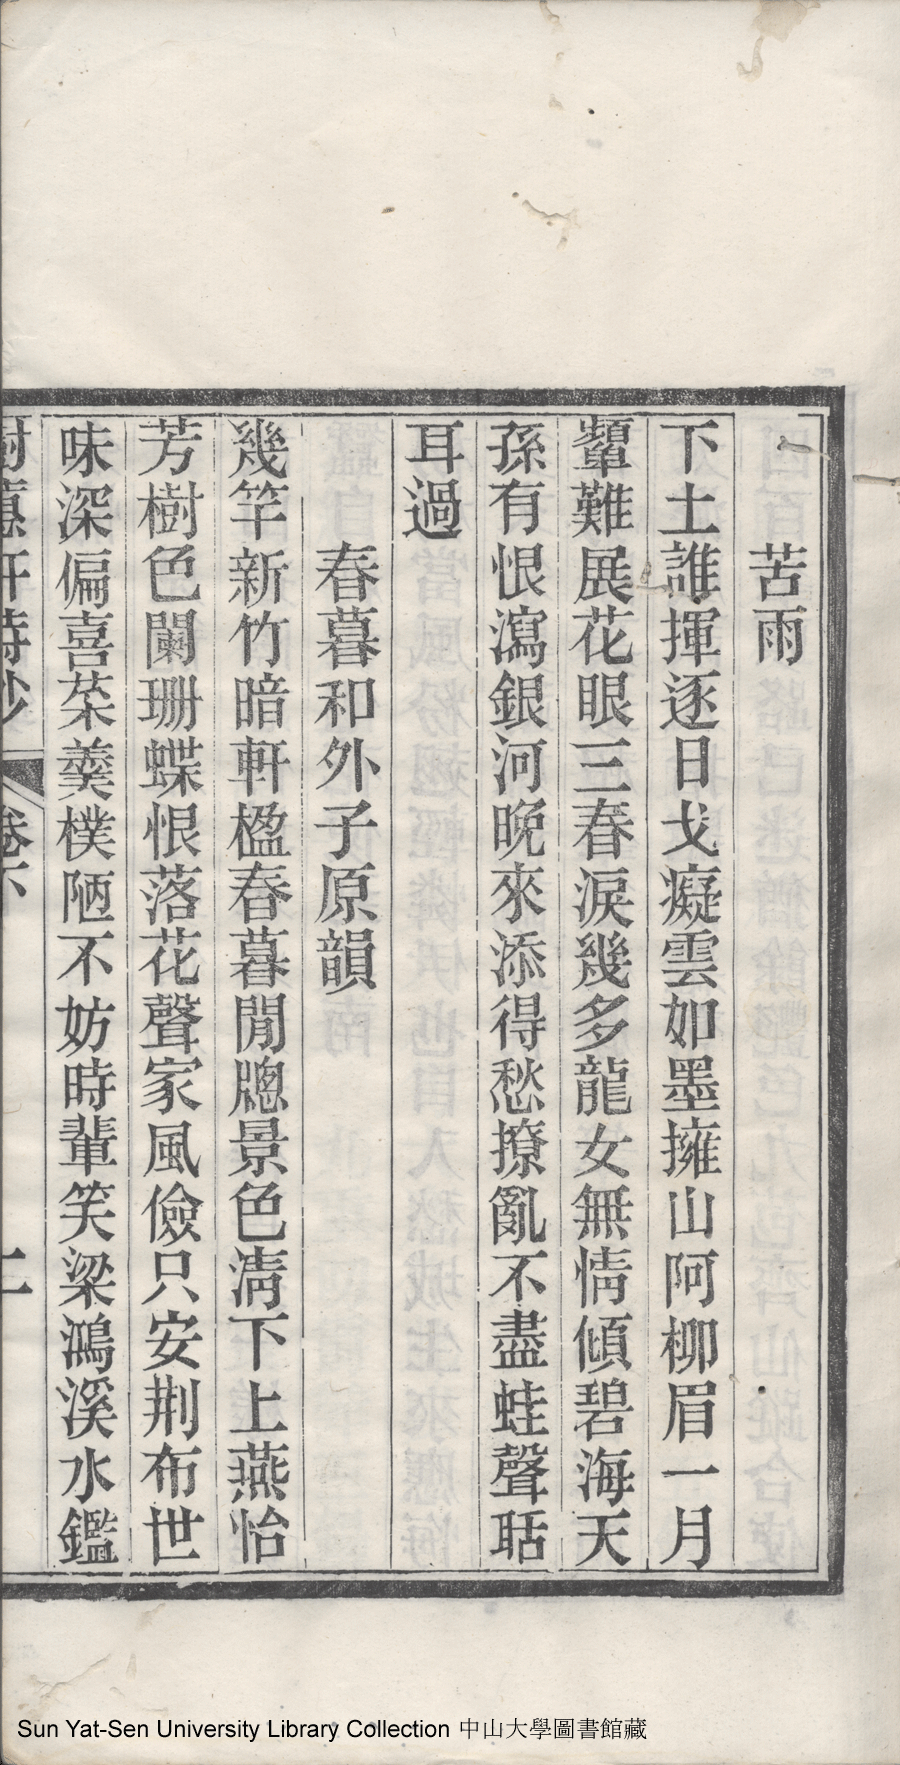 苦雨
下土誰揮逐日戈癡雲如墨擁山阿柳眉一月
顰難展花眼三春淚幾多龍女無情傾碧海天
孫有恨瀉銀河晚來添得愁撩亂不盡蛙聲聒
耳過
春暮和外子原韻
幾竿新竹暗軒楹春暮閒牕景色淸下上燕怡
芳樹色闌珊蝶恨落花聲家風儉只安荆布世
味深偏喜菜羹樸陋不妨時輩笑梁鴻溪水鑑
蕙軒詩鈔 卷下 二
Sun Yat-Sen University Library Collection 中山大學圖書館藏